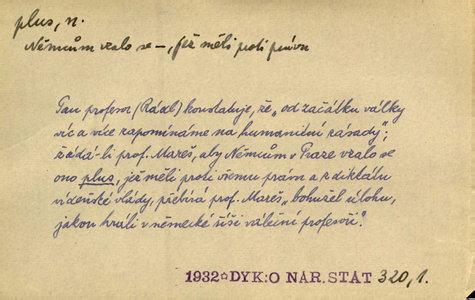 plus, n.
Němcům vzalo se —, jež měli proti právu
Pan profesor (Rádl) konstatuje, že „od začátku války
víc a více zapomínáme na humanitní zásady";
žádá-li prof. Mareš, aby Němcům v Praze vzalo se
ono plus, jež měli proti všemu právu a z diktátu
vídeňské vlády, přebírá prof. Mareš „bohužel úlohu,
jakou hráli v německé říši váleční profesoři".
1932☆DYK: O NÁR. STÁT 320,1.